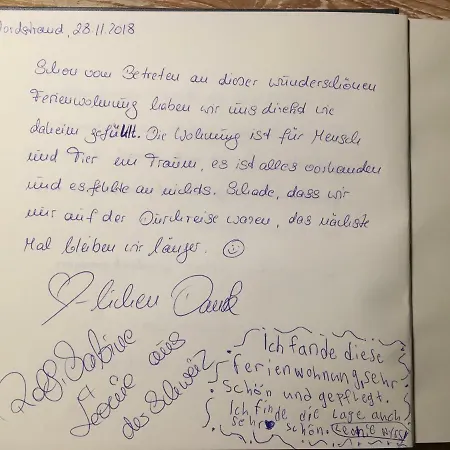 Nordstrand, 23.11.2018
Schon vom Betreten an dieser wunderschönen
Ferienwohnung haben wir uns direkt wie
daheim gefühlt. Die Wohnung ist für Mensch
und Tier ein Traum, es ist alles vorhanden
und es fehlte an nichts. Schade, dass wir
nur auf der Durchreise waren, das nächste
Mal bleiben wir länger. ☺
♡-lichen Dank
Rolf, Sabine
aus
der Schweiz
Ich fande diese
ferienwohnung sehr
schön und gepflegt.
Ich finde die Lage auch
sehr schön.